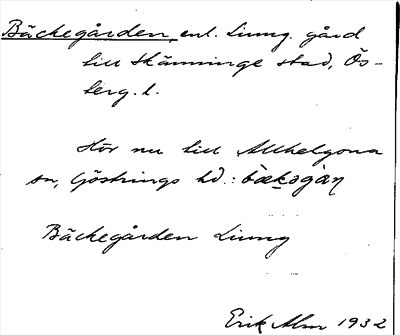 Bäckegården, enl. Ljung. gård
till Skänninge stad, Ös-
terg. l.
Hör nu till Allhelgona
sn, Göstrings hd.:
Bäckegården Ljung
Erik Alm 1932